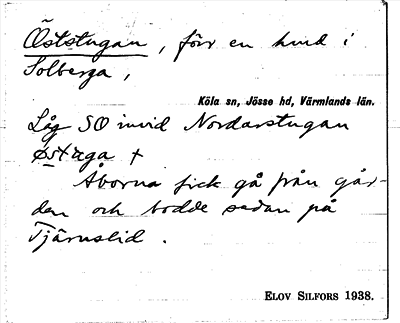 Öststugan, förr en hmd i
Solberga,
Köla sn, Jösse hd, Värmlands län.
Låg SO invid Nordarstugan
østaga +
Åborna fick gå från går-
den och bodde sedan på
Tjärnslid.
ELOV SILFORS 1938.